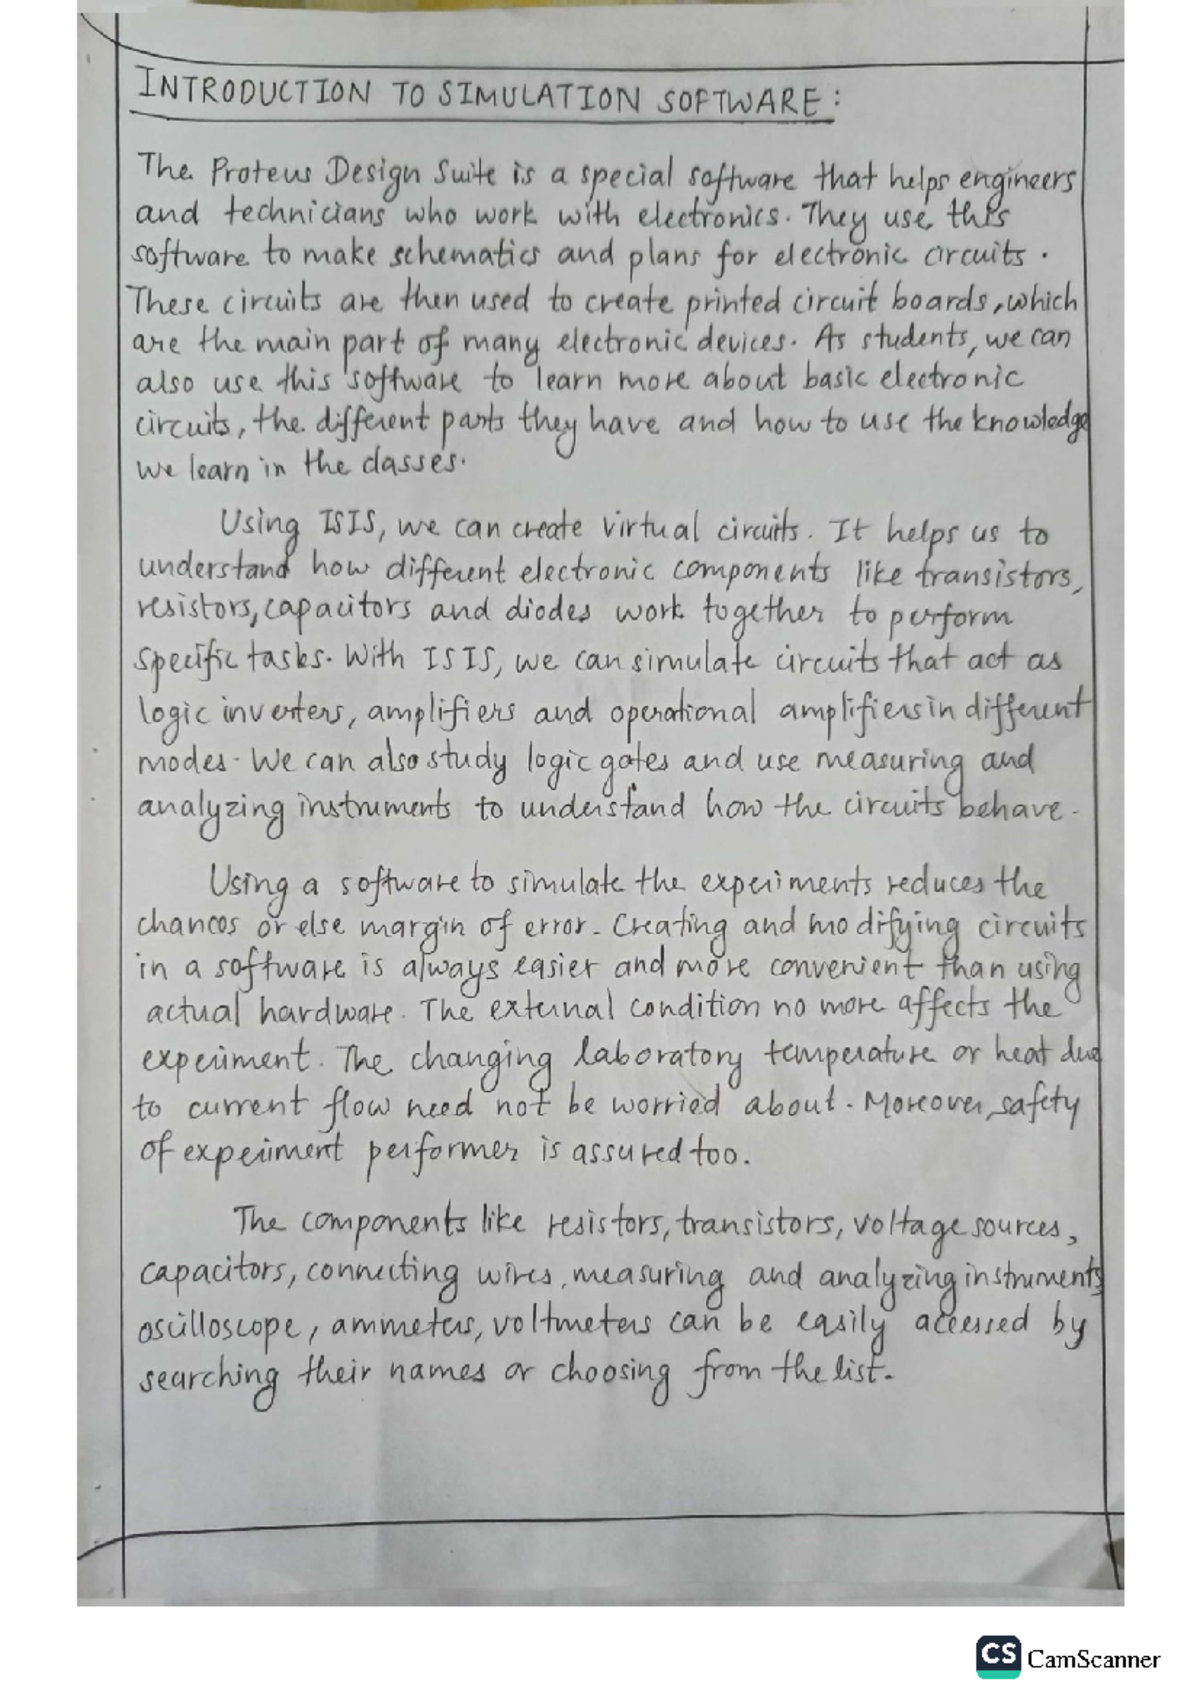 INTRODUCTION TO SIMULATION SOFTWARE:
The Proteus Design Suite is a special software that helps engineers
and technicians who work with electronics. They use this
software to make schematics and plans for electronic circuits.
These circuits are then used to create printed circuit boards, which
are the main part of many electronic devices. As students, we can
also use this software to learn more about basic electronic
circuits, the different parts they have and how to use the knowledge
we learn in the classes.
Using ISIS, we can create virtual circuits. It helps us to
understand how different electronic components like transistors,
resistors, capacitors and diodes work together to perform
specific tasks. With ISIS, we can simulate circuits that act as
logic inverters, amplifiers and operational amplifiers in different
modes. We can also study logic gates and use measuring and
analyzing instruments to understand how the circuits behave.
Using a software to simulate the experiments reduces the
chances or else margin of error. Creating and modifying circuits
in a software is always easier and more convenient than using
actual hardware. The external condition no more affects the
experiment. The changing laboratory temperature or heat due
to current flow need not be worried about. Moreover, safety
of experiment performer is assured too.
The components like resistors, transistors, voltage sources,
capacitors, connecting wires, measuring and analyzing instruments
oscilloscope, ammeters, voltmeters can be easily accessed by
searching their names or choosing from the list.
CS CamScanner